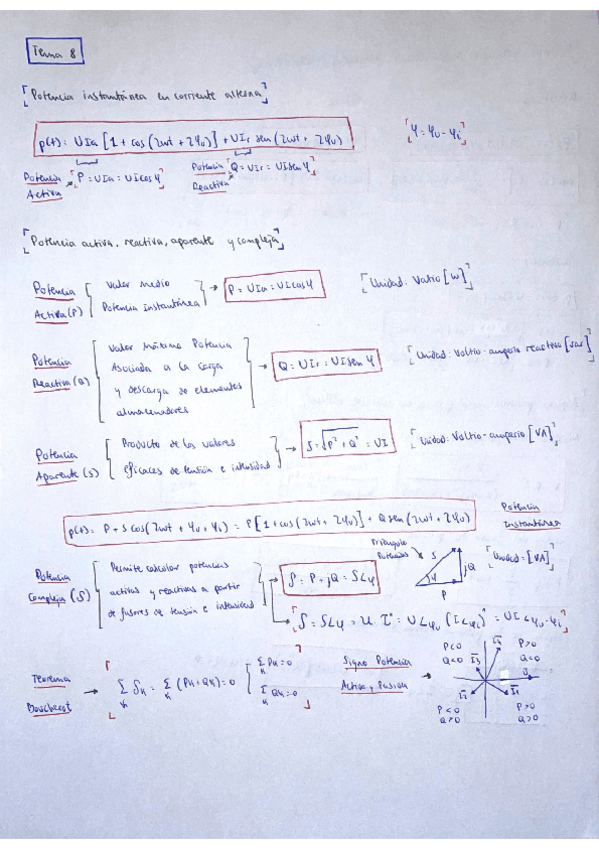 Tema 8
Potencia instantánea en corriente alterna
p(t) = UIa [1 + cos (2wt + 2φu)] + UIr sen (2wt + 2φu)
φ = φu - φi
Potencia Activa P = UIa = UI cos φ
Potencia Reactiva Q = UIr = UI sen φ
Potencia activa, reactiva, aparente y compleja
Potencia Activa (P)
Valor medio
Potencia instantánea
P = UIa = UI cos φ
Unidad: Vatio [W]
Potencia Reactiva (Q)
Valor máximo Potencia
Asociada a la carga
y descarga de elementos
almacenadores
Q = UIr = UI sen φ
Unidad: Voltio-amperio reactivo [var]
Potencia Aparente (S)
Producto de los valores
eficaces de tensión e intensidad
S = √P² + Q² = UI
Unidad: Voltio-amperio [VA]
p(t) = P + S cos (2wt + φu + φi) = P [1 + cos (2wt + 2φu)] + Q sen (2wt + 2φu)
Potencia Instantánea
Potencia Compleja (S)
Permite calcular potencias
activas y reactivas a partir
de fasores de tensión e intensidad
S = P + jQ = S∠φ
Triángulo Potencias
S
φ
jQ
P
Unidad = [VA]
S = S∠φ = U · I* = U∠φu (I∠φi)* = UI∠φu-φi
Teorema Boucherot
Σk Sk = Σk (Pk + Qk) = 0
Σk Pk = 0
Σk Qk = 0
Signo Potencia
Activa y
P<0
Q<0
I3
I4
P>0
Q<0
U
I2
I1
P<0
Q>0
P>0
Q>0